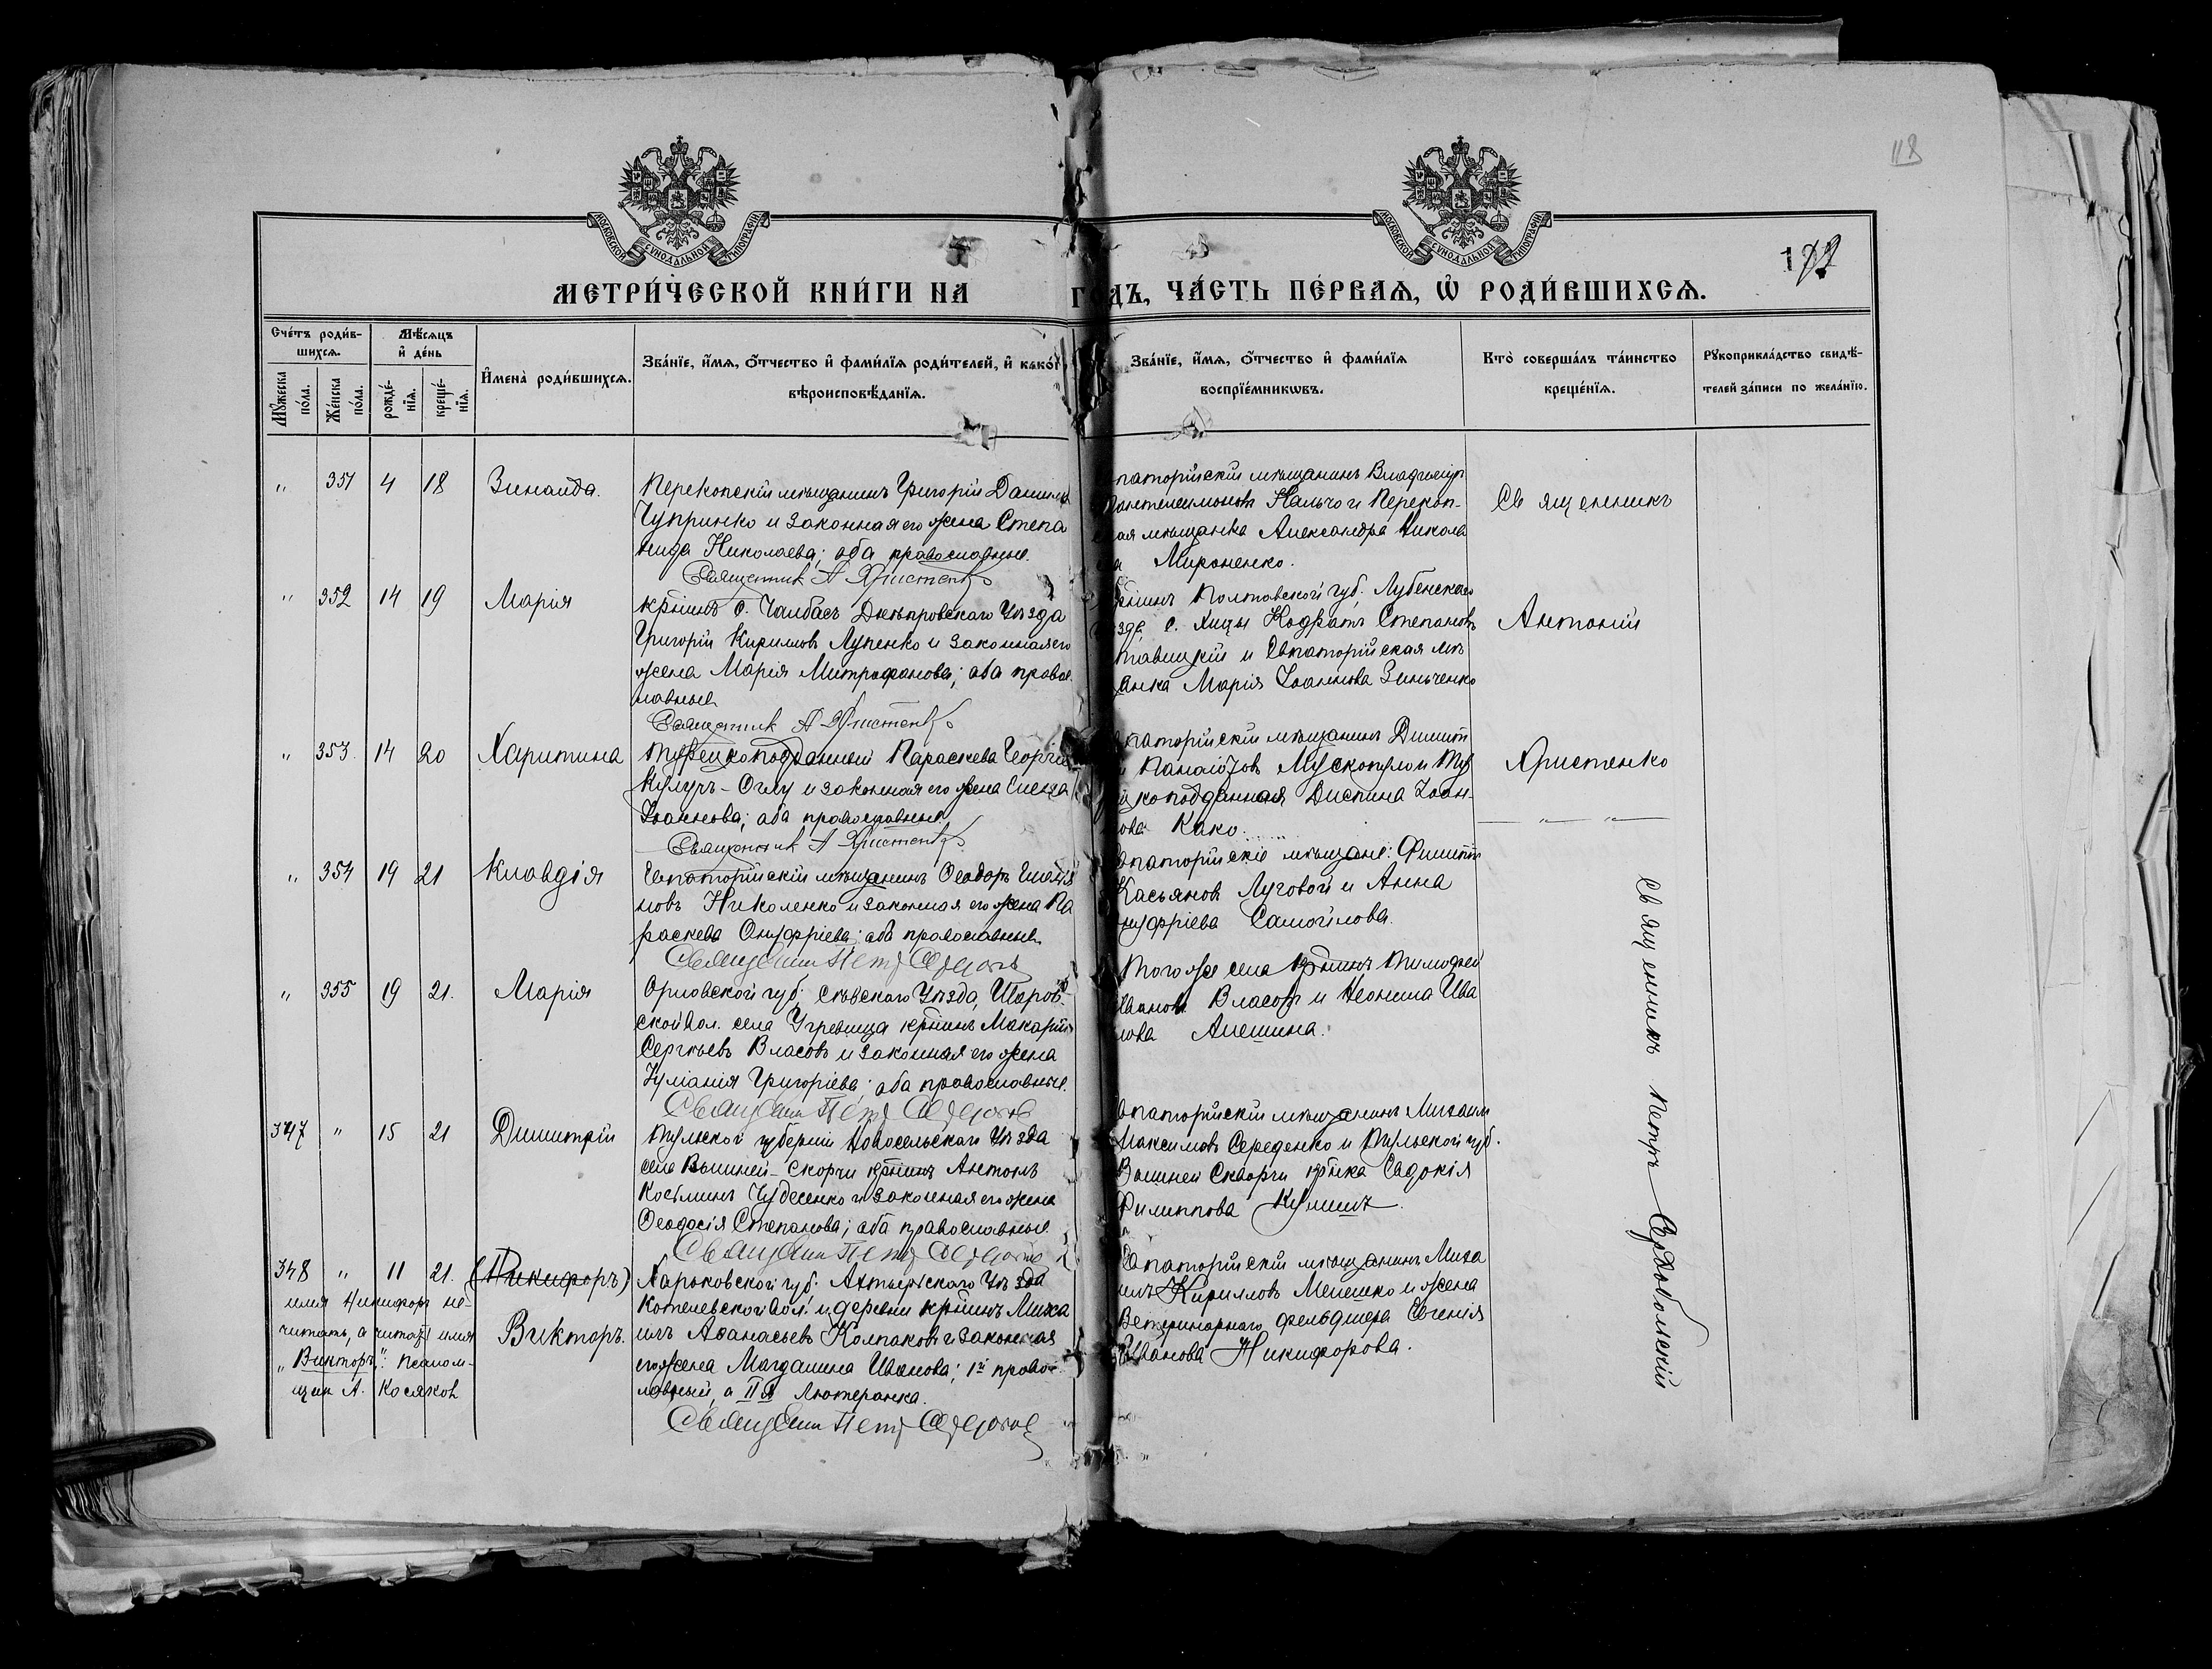 118
МОСКОВСКОЙ СѴНОДАЛЬНОЙ ТИПОГРАФІИ
МОСКОВСКОЙ СѴНОДАЛЬНОЙ ТИПОГРАФІИ
172
МЕТРИ́ЧЕСКОЙ КНИ́ГИ НА ГОДЪ, ЧА́СТЬ ПЕ́РВАѦ, Ѡ҆ РОДИ́ВШИХСѦ.
Сче́тъ роди́в-
шихсѧ.
Мꙋ́жеска по́ла.
Же́нска по́ла.
Мѣ́сѧцъ
и҆ де́нь
рожде́-
нїѧ.
креще́-
нїѧ.
И҆мена̀ роди́вшихсѧ.
Зва́нїе, и҆́мѧ, ѻ҆́тчество и҆ фами́лїѧ роди́телей, и҆ како́гѡ
вѣроисповѣ́данїѧ.
Зва́нїе, и҆́мѧ, ѻ҆́тчество и҆ фами́лїѧ
воспрїе́мникѡвъ.
Кто̀ соверша́лъ та́инство
креще́нїѧ.
Рꙋкоприкла́дство свидѣ́-
телей за́писи по жела́нїю.
" 351 4 18 Зинаида.
Перекопскій мѣщанинъ Григорій Данилов
Чупринко и законная его жена Степа
нида Николаева; оба православные.
Священник А Христенко
паторійскій мѣщанинъ Владимір
Пантелеимоновъ Кальчо и Перекоп-
ская мѣщанка Александра Никола
Мироненко.
Священникъ
" 352 14 19 Марія
кр̃нинъ с. Чалбасъ Днѣпровскаго Уѣзда
Григорій Кириллов Лупенко и законная его
жена Марія Митрофанова; оба правос
лавные
Священник А Христенко
Полтавской губ. Лубенскаго
с. Кодратъ Степановъ
тавицкій и Евпаторійская мѣ
анка Марія Іоаннова Зинченко
Антоній
" 353. 14 20 Харитина
Турецкоподданный Параскева Георгіев
Кулуръ-Оглу и законная его жена Елена
Іоаннова; оба православные
Священник А Христенко
паторійскій мѣщанинъ Димит
Панаіотов Мускопуло и Тур
цкоподданная Диспина Іоан-
ова Како.
Христенко
— " — " —
" 354 19 21 Клавдія
Евпаторійскій мѣщанинъ Ѳеодоръ
новъ Николенко и законная его жена Па
раскева Онуфріева; оба православные.
Священник Петр Сердобол
паторійскіе мѣщане: Филиппъ
Касьянов Луговой и Анна
нуфріева Самойлова.
" 355 19 21. Марія
Орловской губ. Сѣвскаго Уѣзда, Шаров-
ской вол. села Угревища кр̃нинъ Макарій
Сергѣевъ Власовъ и законная его жена
Іуліанія Григоріева; оба православные.
Священник Петр Сердобол
Того же села кр̃нинъ Тимофей
Иванов Власов и Неонила Ива
нова Алешина.
347 " 15 21 Димитрій
Тульской губерніи Новосельскаго Уѣзда
села Вышней-Скорчи кр̃нинъ Антонъ
Костминъ Чудесенко и законная его жена
Ѳеодосія Степанова; оба православные.
Священник Петр Сердобол
паторійскій мѣщанинъ Михаил
Максимовъ Середенко и Тульской губ.
Вышней Скворчи кр̃нка Евдокія
Филиппова Кулишъ.
348 " 11 21. (Никифоръ)
имя Никифоръ не-
читать, а читать имя
"Викторъ". Псалом-
щик А. Косяков
Викторъ.
Харьковской губ. Ахтырскаго Уѣзда
Котелевской вол. и деревни кр̃нинъ Миха
илъ Аѳанасьевъ Колпаковъ и законная
его жена Магдалина Иванова; 1й правос
лавный, а IIя Лютеранка.
Священник Петр Сердобол
Евпаторійскій мѣщанинъ Миха
илъ Кирилловъ Мелешко и жена
Ветеринарнаго фельдшера Евгенія
Иванова Никифорова.
Священникъ Петръ Сердобольскій